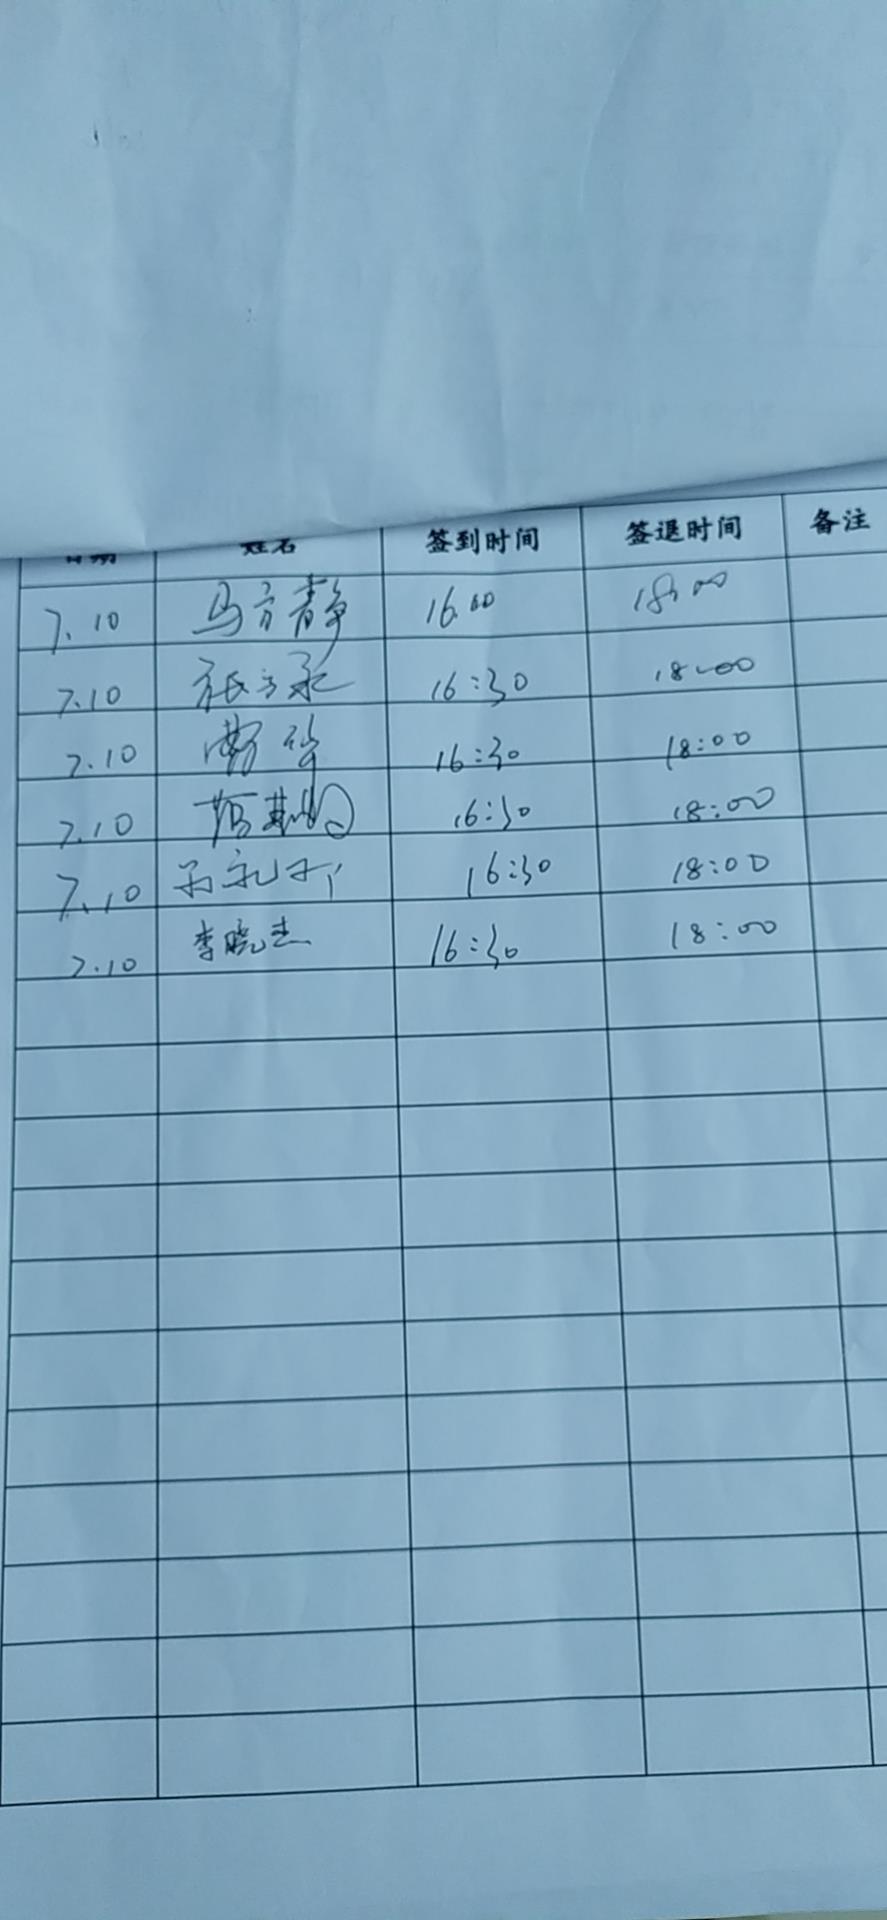 日期 姓名 签到时间 签退时间 备注
7.10 马方静 16.00 18:00
7.10 16:30 18:00
7.10 曹华 16:30 18:00
7.10 16:30 18:00
7.10 16:30 18:00
7.10 李晓杰 16:30 18:00